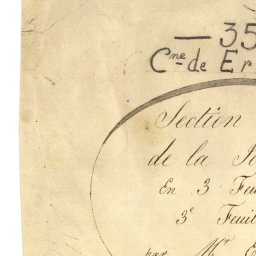 — 35
Cne de Er
Section
de la
En 3 Feu
3e Feuil
par Mr